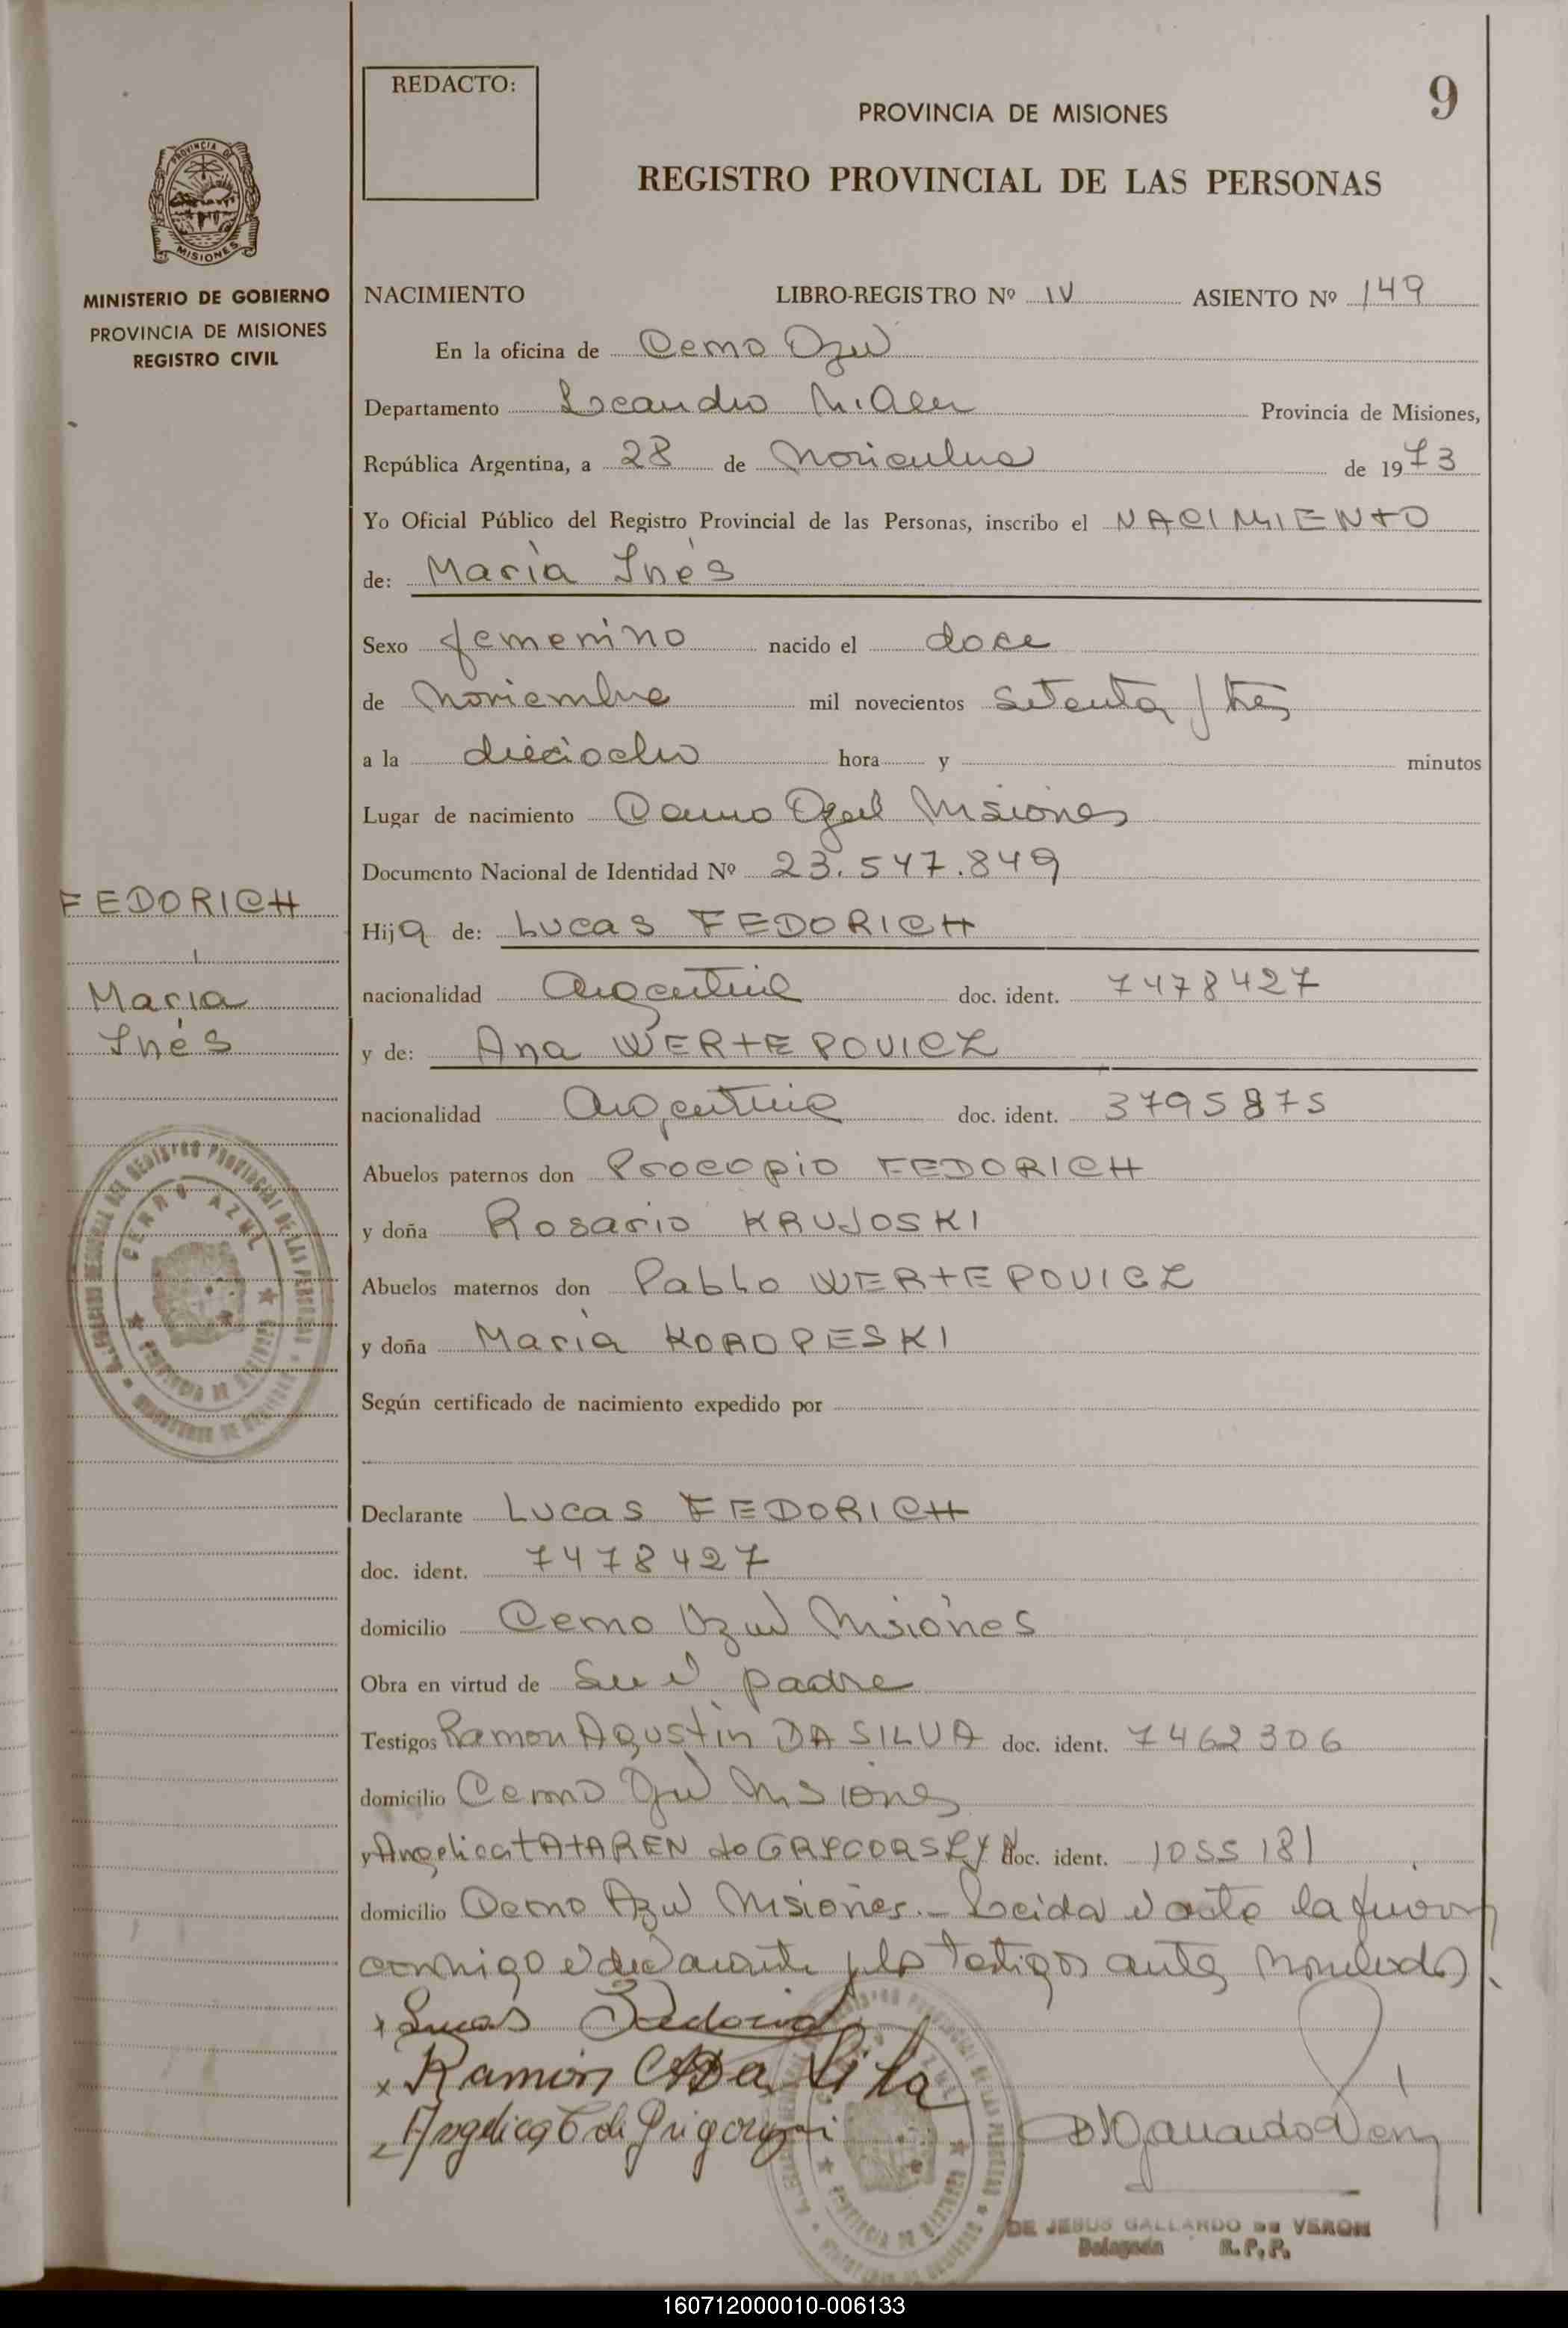 REDACTO:
9
PROVINCIA DE MISIONES
REGISTRO PROVINCIAL DE LAS PERSONAS
PROVINCIA DE
MISIONES
MINISTERIO DE GOBIERNO
PROVINCIA DE MISIONES
REGISTRO CIVIL
NACIMIENTO LIBRO-REGISTRO Nº IV ASIENTO Nº 149
En la oficina de Cerro Azul
Departamento Leandro N. Alem Provincia de Misiones,
República Argentina, a 28 de Noviembre de 1973
Yo Oficial Público del Registro Provincial de las Personas, inscribo el NACIMIENTO
de: María Inés
Sexo femenino nacido el doce
de Noviembre mil novecientos setenta y tres
a la dieciocho hora y minutos
Lugar de nacimiento Cerro Azul Misiones
Documento Nacional de Identidad Nº 23.547.849
FEDORICH
María
Inés
Hija de: Lucas FEDORICH
nacionalidad Argentina doc. ident. 7478427
y de: Ana WERTEPOVICZ
nacionalidad Argentina doc. ident. 3795875
Abuelos paternos don Procopio FEDORICH
y doña Rosario KRUJOSKI
Abuelos maternos don Pablo WERTEPOVICZ
y doña María KOROPESKI
CERRO AZUL
Según certificado de nacimiento expedido por
Declarante Lucas FEDORICH
doc. ident. 7478427
domicilio Cerro Azul Misiones
Obra en virtud de ser el padre
Testigos Ramon Agustin DA SILVA doc. ident. 7462306
domicilio Cerro Azul Misiones
y Angelica TATAREN de doc. ident. 1055181
domicilio Cerro Azul Misiones.- Leida el acta la firman
conmigo el declarante y los testigos antes nombrados.
Lucas Fedorich
Ramón A Da Silva
Angelica T de Grigorczki
DE JESUS GALLARDO DE VERON
Delegada R.P.P.
160712000010-006133